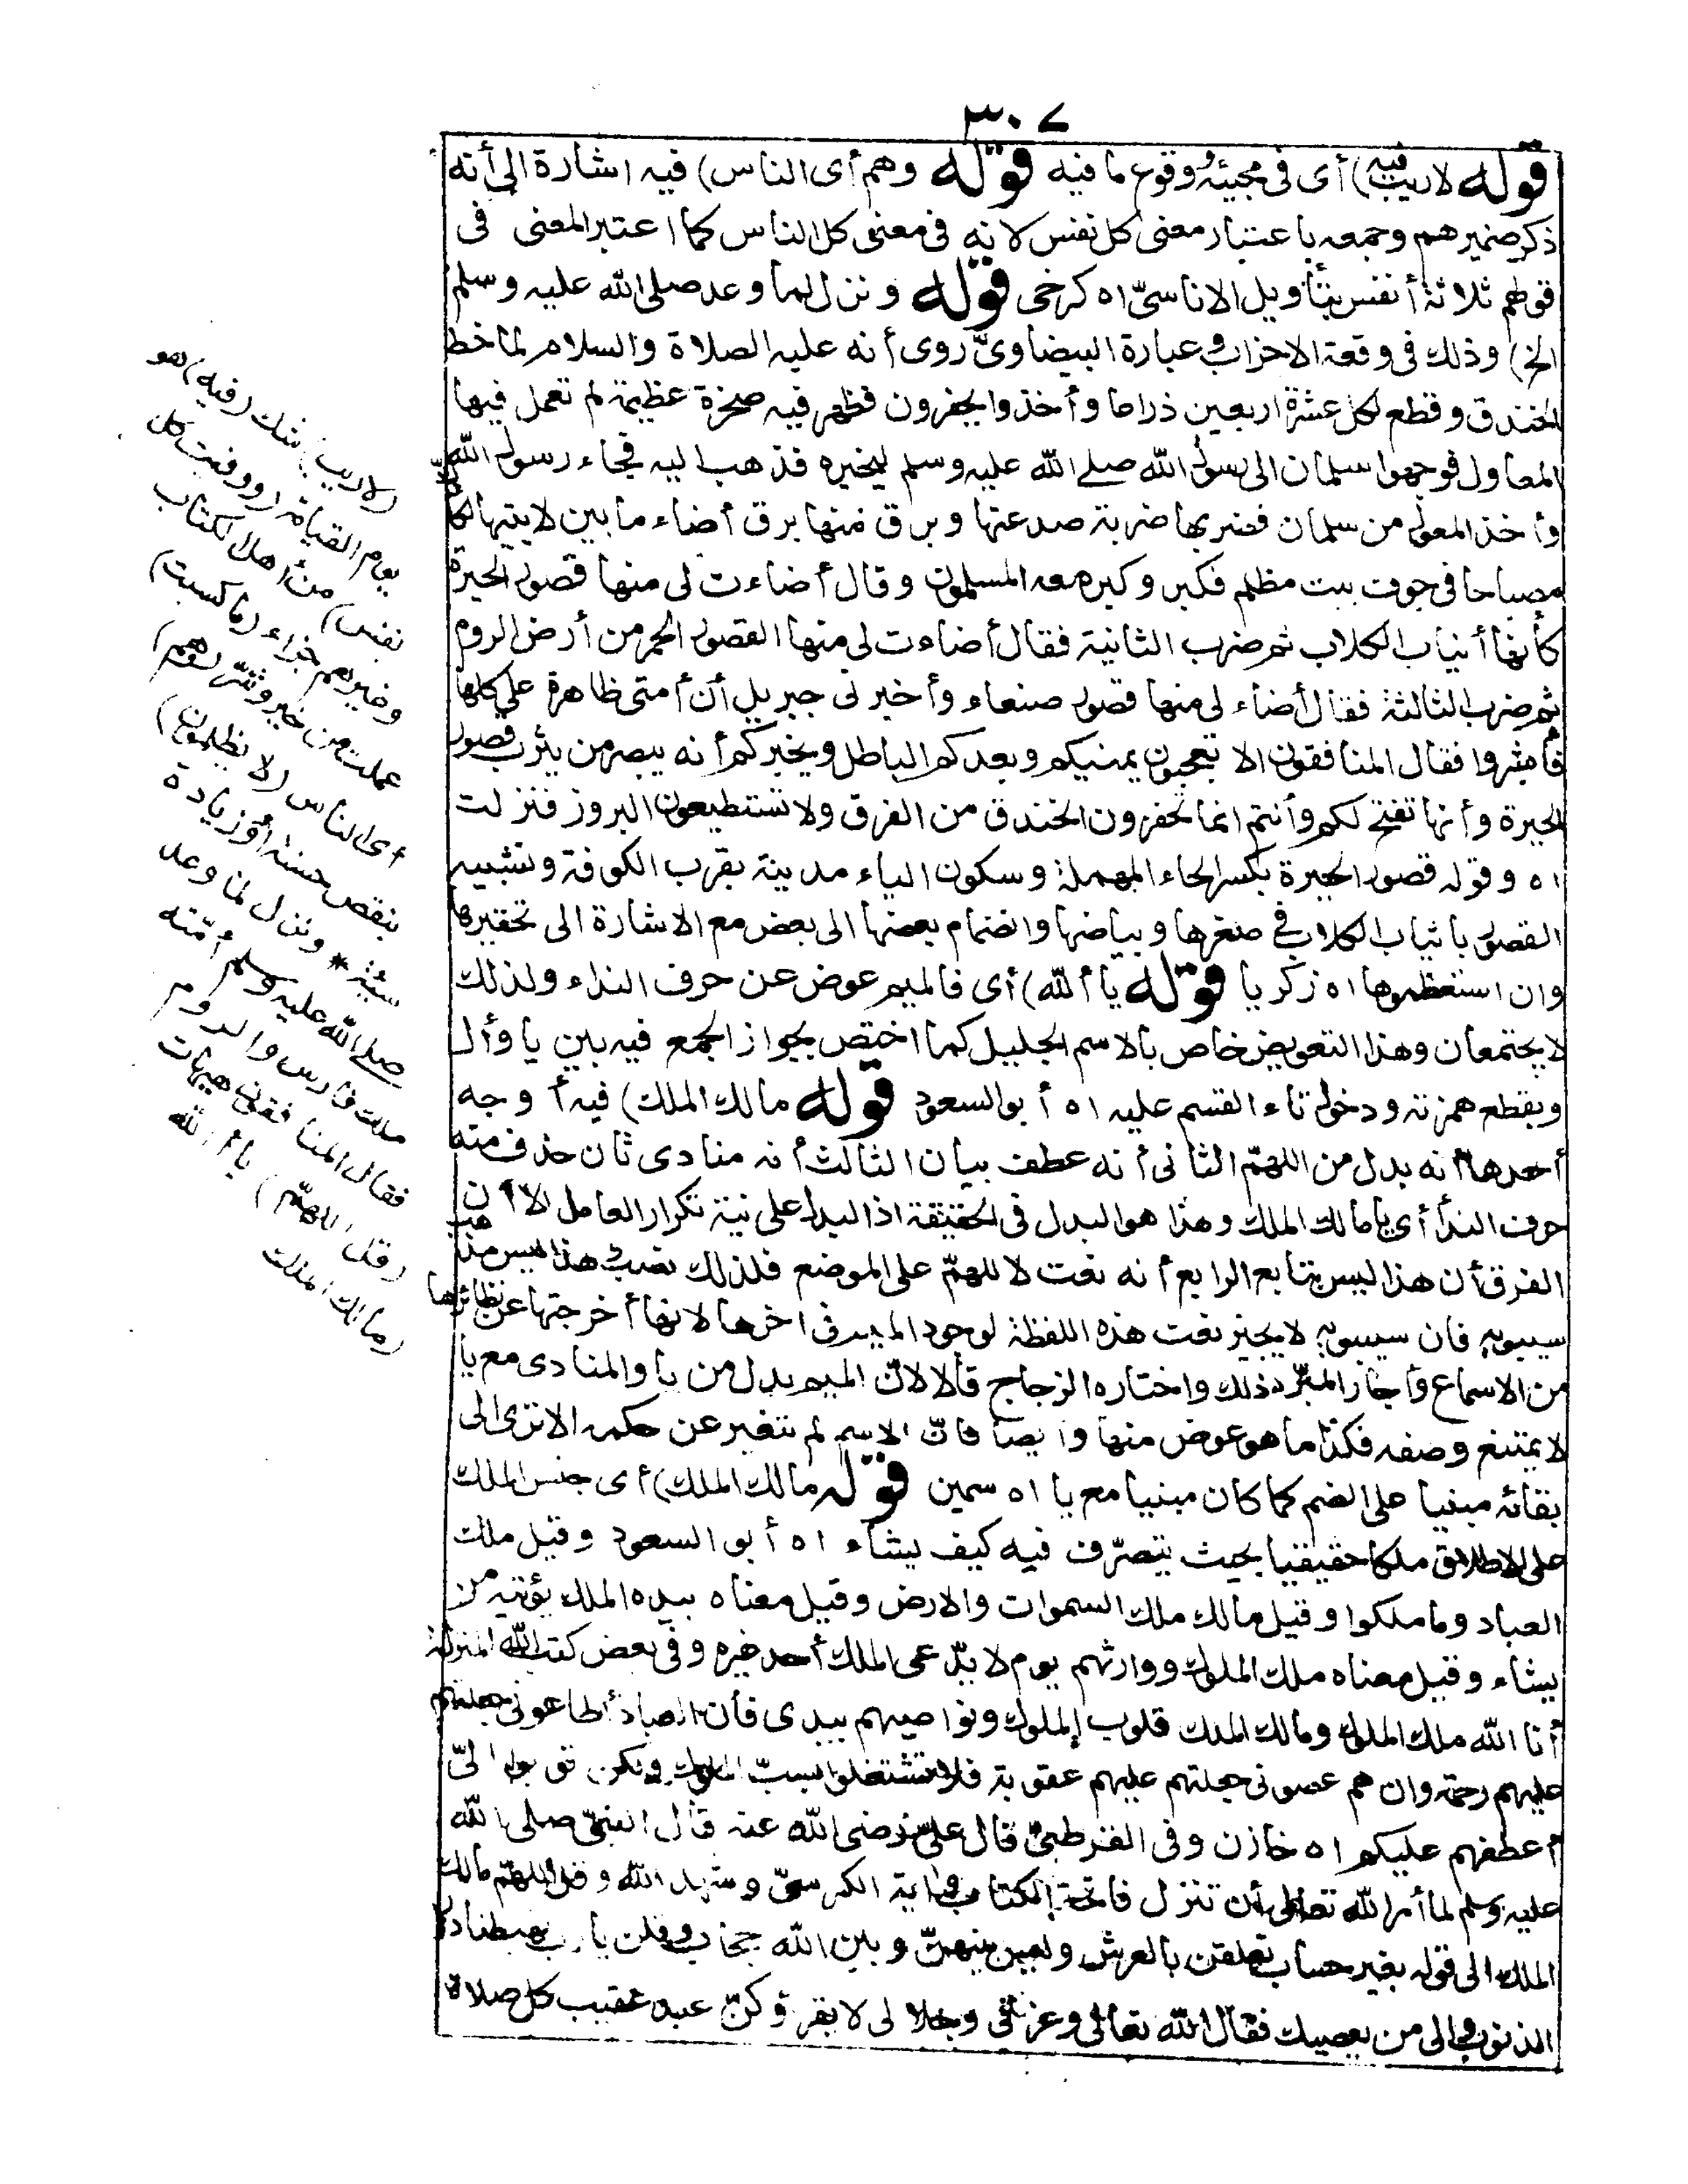 ٣٠٧
قوله لا ريب فيه) أى فى مجيئه ووقوع ما فيه قوله وهم أى الناس) فيه اشارة الى أنه
ذكر ضمير هم وجمعه باعتبار معنى كل نفس لانه فى معنى كل الناس كما اعتبر المعنى فى
قولهم ثلاثة أنفس بتأويل الاناسىّ اه كرخى قوله ونزل لما وعد صلى الله عليه وسلم
الخ) وذلك فى وقعة الاحزاب وعبارة البيضاوىّ روى أنه عليه الصلاة والسلام لما خط
الخندق وقطع لكل عشرة اربعين ذراعا وأخذوا يحفرون فظهر فيه صخرة عظيمة لم تعمل فيها
المعاول فوجهوا سلمان الى رسول الله صلى الله عليه وسلم ليخبره فذهب اليه فجاء رسول الله
وأخذ المعول من سلمان فضربها ضربة صدعتها وبرق منها برق أضاء ما بين لابتيها لكأنّ
مصباحا فى جوف بيت مظلم فكبر وكبر معه المسلمون وقال أضاءت لى منها قصور الحيرة
كأنها أنياب الكلاب ثم ضرب الثانية فقال أضاءت لى منها القصور الحمر من أرض الروم
ثم ضرب الثالثة فقال أضاء لى منها قصور صنعاء وأخبرنى جبريل أن أمتى ظاهرة على كلها
فأبشروا فقال المنافقون الا تعجبون يمنيكم ويعدكم الباطل ويخبركم أنه يبصر من يثرب قصور
الحيرة وأنها تفتح لكم وأنتم انما تحفرون الخندق من الفرق ولا تستطيعون البروز فنزلت
اه وقوله قصور الحيرة بكسر الحاء المهملة وسكون الياء مدينة بقرب الكوفة وتشبيه
القصور بانياب الكلاب فى صغرها وبياضها وانضمام بعضها الى بعض مع الاشارة الى تحقيرها
وان استعظموها اه زكريا قوله يا ألله) أى فالميم عوض عن حرف النداء ولذلك
لا يجتمعان وهذا التعويض خاص بالاسم الجليل كما اختص بجواز الجمع فيه بين يا وأل
وبقطع همزته ودخول تاء القسم عليه اه أبو السعود قوله مالك الملك) فيه أوجه
أحدها أنه بدل من اللهمّ الثانى أنه عطف بيان الثالث أنه منادى ثان حذف منه
حرف الندأ أى يا مالك الملك وهذا هو البدل فى الحقيقة اذ البدل على نية تكرار العامل الا أن
الفرق أن هذا ليس بتابع الرابع أنه نعت لا للهمّ على الموضع فلذلك نصب وهذا ليس مذهب
سيبويه فان سيبويه لا يجيز نعت هذه اللفظة لوجود الميم فى اخرها لانها أخرجتها عن نظائرها
من الاسماء وأجاز المبرّد ذلك واختاره الزجاج قالا لانّ الميم بدل من يا والمنادى مع يا
لا يمتنع وصفه فكذا ما هو عوض منها وأيضا فانّ الاسم لم يتغير عن حكمه الا ترى الى
بقائه مبنيا على الضم كما كان مبنيا مع يا اه سمين قوله مالك الملك) أى جنس الملك
على الاطلاق ملكا حقيقيا بحيث يتصرّف فيه كيف يشاء اه أبو السعود وقيل ملك
العباد وما ملكوا وقيل مالك ملك السموات والارض وقيل معناه بيده الملك يؤتيه من
يشاء وقيل معناه ملك الملوك ووارثهم يوم لا يدّعى الملك أحد غيره وفى بعض كتب الله المنزلة
أنا الله ملك الملوك ومالك الملك قلوب الملوك ونواصيهم بيدى فأن العباد أطاعونى جعلتهم
عليهم رحمة وان هم عصونى جعلتهم عليهم عقوبة فلا تشتغلوا بسبّ الملوك ولكن توبوا الىّ
أعطفهم عليكم اه خازن وفى القرطبىّ قال علىّ رضى الله عنه قال النبىّ صلى الله
عليه وسلم لما أمر الله تعالى أن تنزل فاتحة الكتاب واية الكرسىّ وشهد الله وقل اللهمّ مالك
الملك الى قوله بغير حساب تعلقن بالعرش وليس بينهنّ وبين الله حجاب وقلن يارب تهبطنا دار
الذنوب والى من يعصيك فقال الله تعالى وعزتى وجلالى لا يقرؤكنّ عبد عقيب كل صلاة
(لا ريب) شك (فيه) هو
يوم القيامة (ووفيت كل
نفس) من أهل الكتاب
وغيرهم جزاء (ما كسبت)
عملت من خير وشرّ (وهم)
أى الناس (لا يظلمون)
بنقص حسنة أو زيادة
سيئة * ونزل لما وعد
صلى الله عليه وسلم أمّته
ملك فارس والروم
فقال المنافقون هيهات
(قل اللهمّ) يا ألله
(مالك الملك